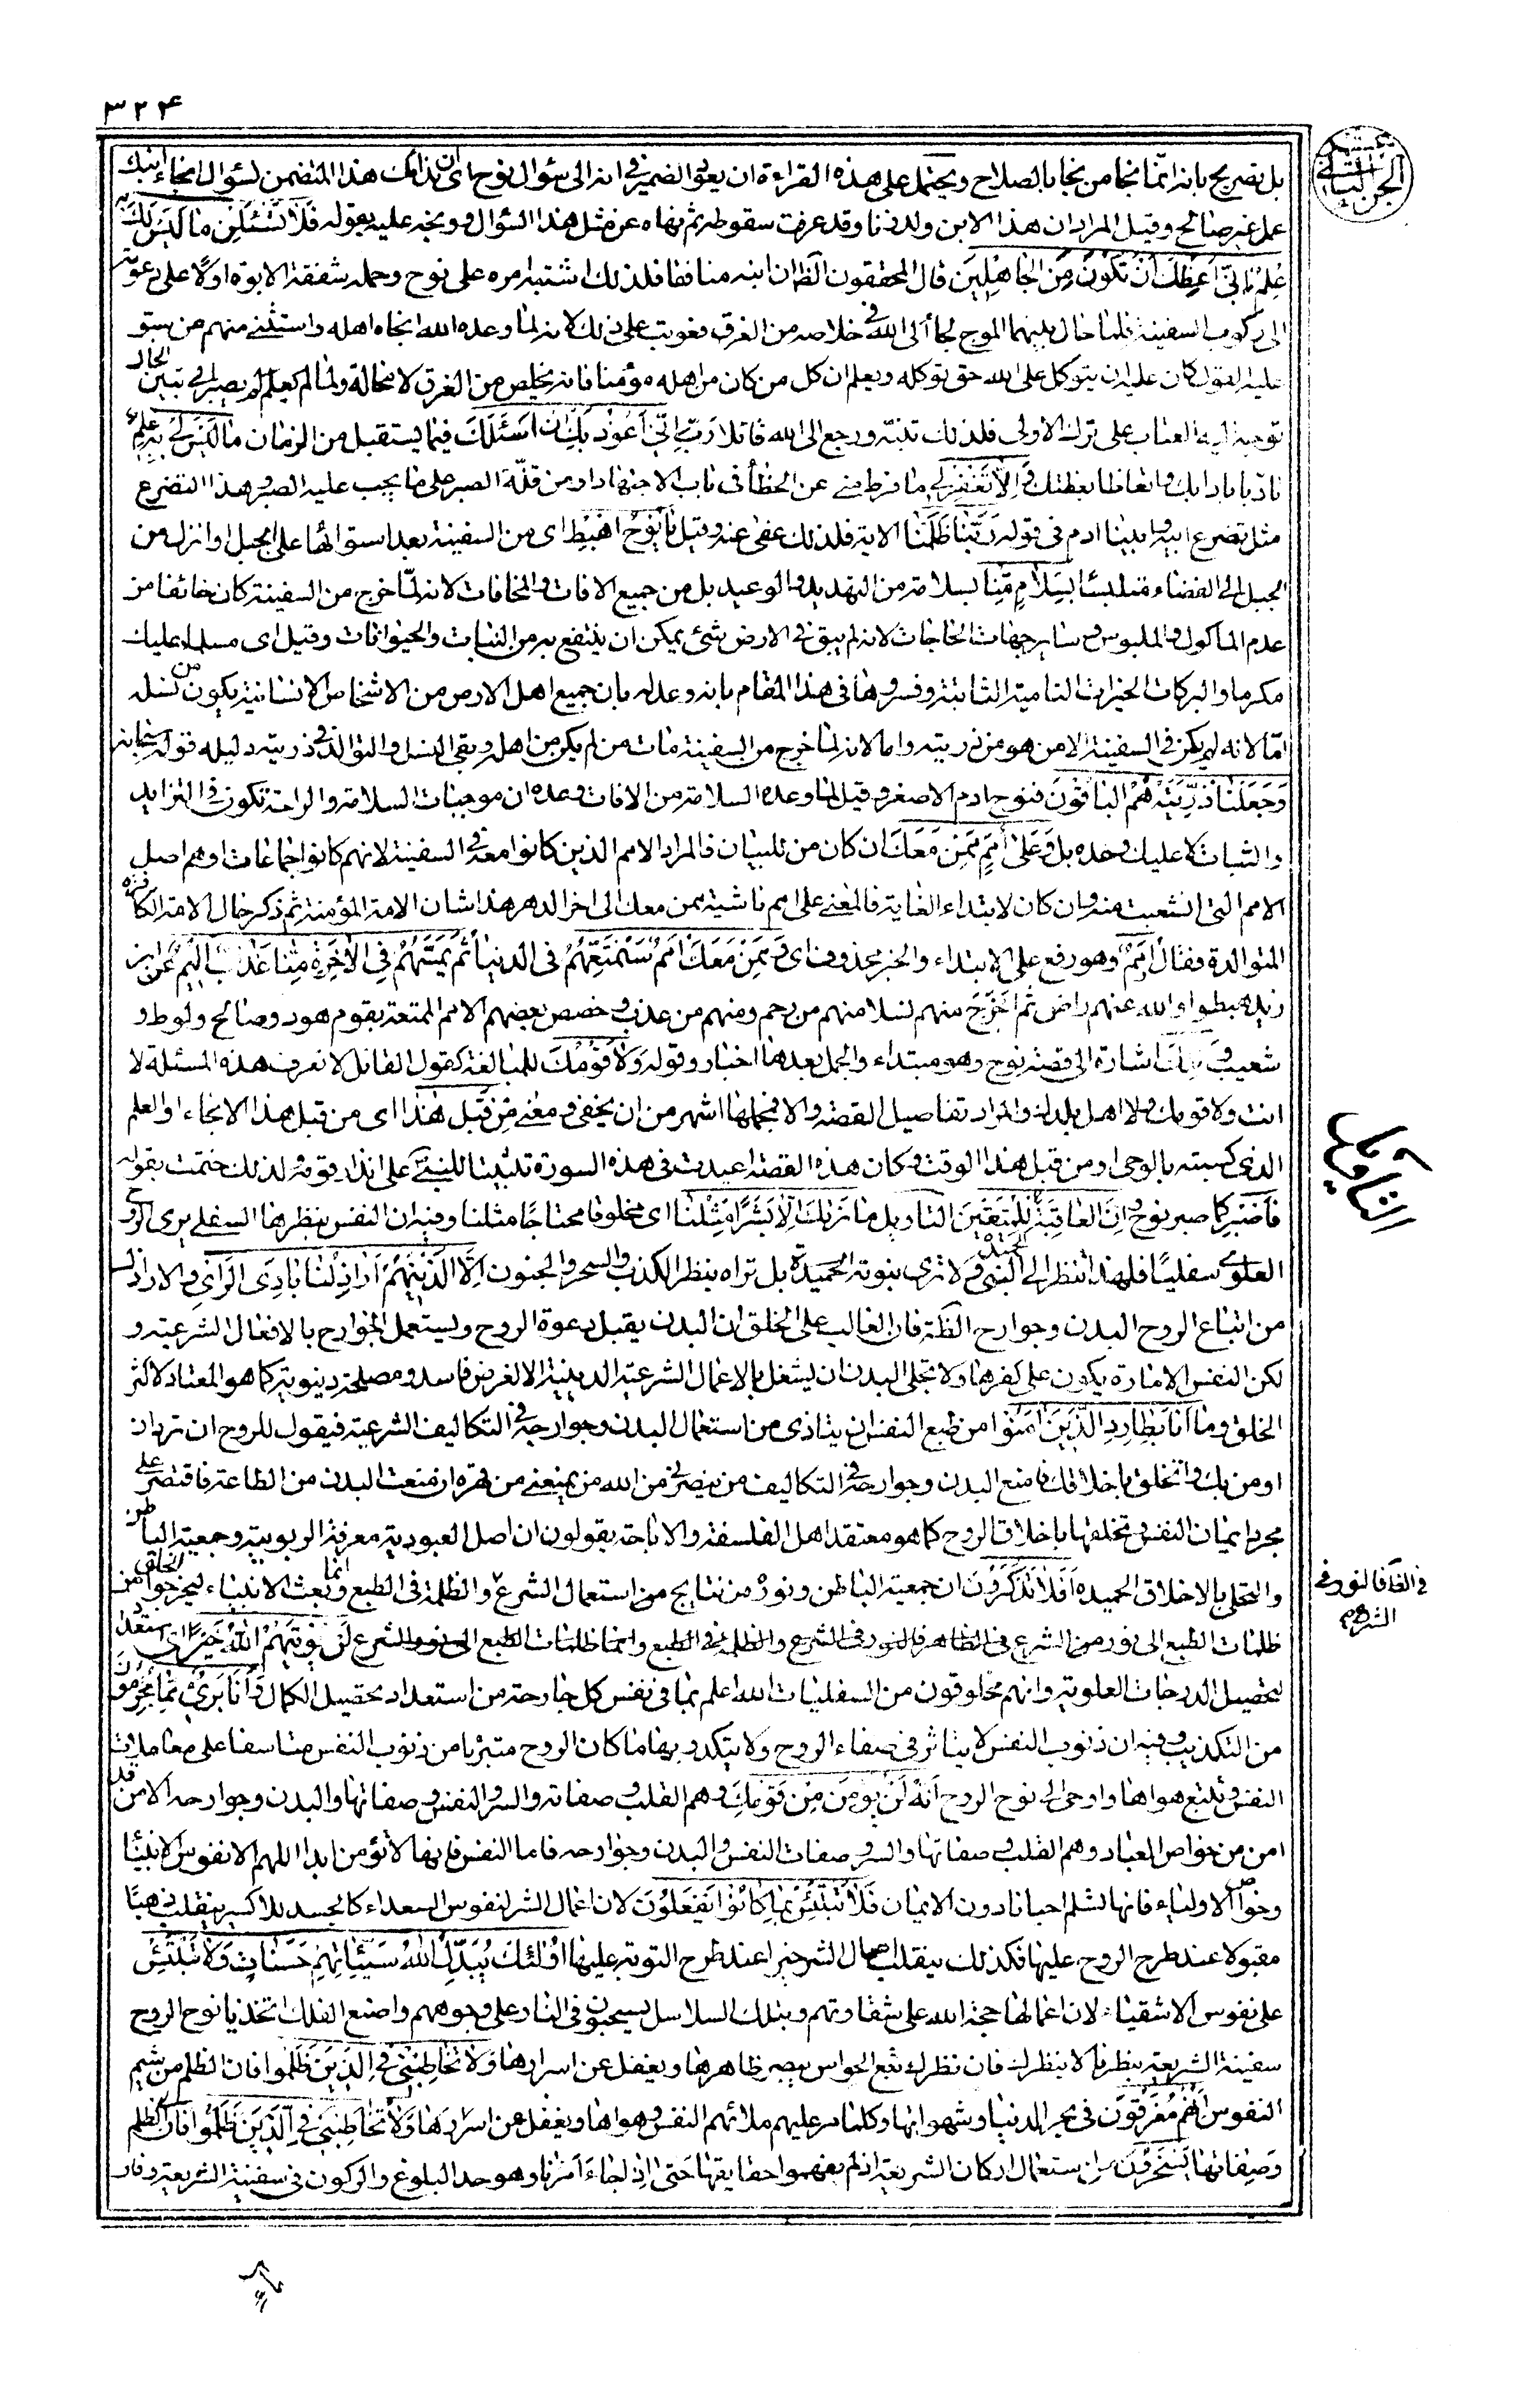 ۳۲۴
الجزء الثانی
بل تصریح بانه انما نجا من نجا بالصلاح ویحتمل علی هذه القراءة ان یعود الضمیر فی انه الی سؤال نوح ای ان نداءک هذا المتضمن لسؤال انجاء ابنک
عمل غیر صالح وقیل المراد ان هذا الابن ولد زنا وقد عرفت سقوطه ثم نهاه عن مثل هذا السؤال ووبخه علیه بقوله فَلا تَسْئَلْنِ ما لَیْسَ لَکَ بِهِ
عِلْمٌ اِنّی اَعِظُکَ اَنْ تَکُونَ مِنَ الْجاهِلینَ قال المحققون الظ ان ابنه منافقا فلذلک اشتبه امره علی نوح وحمله شفقة الابوة اولا علی دعوته
الی رکوب السفینة فلما حال بینهما الموج لجأ الی الله فی خلاصه من الغرق فعوتب علی ذلک لانه لما وعده الله انجاء اهله واستثنی منهم من سبق
علیه القول کان علیه ان یتوکل علی الله حق توکله ویعلم ان کل من کان من اهله مؤمنا فانه یخلص من الغرق لا محالة ولما لم یعلم لم یصبر الی تبین الحال
توجه الیه العتاب علی ترک الاولی فلذلک تنبه ورجع الی الله قائلا رَبِّ اِنّی اَعُوذُ بِکَ اَنْ اَسْئَلَکَ فیما یستقبل من الزمان ما لَیْسَ لی بِهِ عِلْمٌ
تادبا بآدابک واتعاظا بعظتک وَ اِلّا تَغْفِرْ لی ما فرط منی عن الخطأ فی باب الاجتهاد او من قلة الصبر علی ما یجب علیه الصبر وهذا التضرع
مثل تضرع ابیه وابینا ادم فی قوله رَبَّنا ظَلَمْنا الایة فلذلک عفی عنه وقیل یا نُوحُ اهْبِطْ ای من السفینة بعد استوائها علی الجبل او انزل من
الجبل الی الفضاء متلبسا بِسَلامٍ مِنّا بسلامة من التهدید والوعید بل من جمیع الافات والمخافات لانه لما خرج من السفینة کان خائفا من
عدم الماکول والملبوس وسایر جهات الحاجات لانه لم یبق فی الارض شئ یمکن ان ینتفع به من النبات والحیوانات وقیل ای مسلما علیک
مکرما والبرکات الخیرات النامیة الثابتة وفسروها فی هذا المقام بانه وعد له بان جمیع اهل الارض من الاشخاص الانسانیة یکون من نسله
اما لانه لم یکن فی السفینة الا من هو من ذریته واما لانه لما خرج من السفینة مات من لم یکن من اهله وبقی النسل والتوالد فی ذریته دلیله قوله سبحانه
وَجَعَلْنا ذُرِّیَّتَهُ هُمُ الْباقینَ فنوح ادم الاصغر وقیل لما وعده السلامة من الافات وعده ان موجبات السلامة والراحة تکون فی التزاید
والثبات لا علیک وحده بل وَعَلی اُمَمٍ مِمَّنْ مَعَکَ ان کان من للبیان فالمراد الامم الذین کانوا معه فی السفینة لانهم کانوا جماعات او هم اصل
الامم التی انشعبت منه وان کان لابتداء الغایة فالمعنی علی امم ناشیة ممن معک الی اخر الدهر هذا شان الامة المؤمنة ثم ذکر حال الامة الکافرة
المتوالدة فقال اُمَمٌ وهو رفع علی الابتداء والخبر محذوف ای وَمِمَّنْ مَعَکَ اُمَمٌ سَنُمَتِّعُهُمْ فی الدنیا ثُمَّ یَمَسُّهُمْ فی الاخرة مِنّا عَذابٌ اَلیمٌ عن ابن
زید هبطوا والله عنهم راض ثم اخرج منهم نسلا منهم من رحم ومنهم من عذب وخصص بعضهم الامم الممتعة بقوم هود وصالح ولوط و
شعیب و تِلْکَ اشارة الی قصة نوح وهو مبتداء والجمل بعدها اخبار وقوله وَلا قَوْمُکَ للمبالغة کقول القائل لا تعرف هذه المسئلة لا
انت ولا قومک ولا اهل بلدک والمراد تفاصیل القصة والا فمجملها اشهر من ان یخفی ومعنی مِنْ قَبْلِ هذا ای من قبل هذا الانجاء او العلم
الذی کسبته بالوحی او من قبل هذا الوقت وکان هذه القصة اعیدت فی هذه السورة تثبیتا للنبی علی انذار قومه ولذلک ختمت بقوله
فَاصْبِرْ کما صبر نوح اِنَّ الْعاقِبَةَ لِلْمُتَّقینَ التاویل ما نَریکَ اِلّا بَشَراً مِثْلَنا ای مخلوقا محتاجا مثلنا وفیه ان النفس بنظرها السفلی یری الروح
التاویل
العلوی سفلیا فلهذا تنظر الی النبی ولا تری نبوته الحمیدة بل تراه بنظر الکذب والسحر والجنون اِلَّا الَّذینَ هُمْ اَراذِلُنا بادِیَ الرَّأیِ والاراذل
من اتباع الروح البدن وجوارح الظ فان الغالب علی الخلق ان البدن یقبل دعوة الروح ویستعمل الجوارح بالافعال الشرعیة و
لکن النفس الامارة یکون علی کفرها ولا تخلی البدن ان یشغل بالاعمال الشرعیة الدینیة الا لغرض فاسد ومصلحة دینویة کما هو المعتاد لاکثر
الخلق وَما اَنَا بِطارِدِ الَّذینَ آمَنُوا من طبع النفس ان یتاذی من استعمال البدن وجوارحه فی التکالیف الشرعیة فیقول للروح ان ترد ان
اومن بک واتخلق باخلاقک فامنع البدن وجوارحه فی التکالیف من ینصرنی من الله من یمنعنی من قهره ان منعت البدن من الطاعة فاقتصر علی
مجرد ایمان النفس وتخلقها باخلاق الروح کما هو معتقد اهل الفلسفة والاباحة یقولون ان اصل العبودیة معرفة الربوبیة وجمعیة الباطن
والتحلی بالاخلاق الحمیده اَفَلا تَذَکَّرُونَ ان جمعیة الباطن ونوره من نتایج من استعمال الشرع والظلمة فی الطبع وانما بعث الانبیاء لیخرجوا الخلق من
فی الظ فالنور فی الشرع
ظلمات الطبع الی نور من الشرع فی الظاهر فالنور فی الشرع والظلمة فی الطبع وانما ظلمات الطبع الی نور والشرع لَنْ یُؤْتِیَهُمُ اللّهُ خَیْراً ای استعداد
لتحصیل الدرجات العلویة وانهم مخلوقون من السفلیات الله اعلم بما فی نفس کل جارحة من استعداد تحصیل الکمال وَاَنَا بَریءٌ مِمّا تُجْرِمُونَ
من التکذیب وفیه ان ذنوب النفس لا یتاثر فی صفاء الروح ولا یتکدر بها ما کان الروح متبرئا من ذنوب النفس متاسفا علی معاملات
النفس وتتبع هواها واوحی الی نوح الروح اَنَّهُ لَنْ یُؤْمِنَ مِنْ قَوْمِکَ وهم القلب وصفاته والسر والنفس وصفاتها والبدن وجوارحه الا من قد
امن من خواص العباد وهم القلب وصفاتها والسر وصفات النفس والبدن وجوارحه فاما النفس فانها لا تؤمن ابدا اللهم الا نفوس الانبیاء
وخواص الاولیاء فانها تسلم احیانا دون الایمان فَلا تَبْتَئِسْ بِما کانُوا یَفْعَلُونَ لان اعمال الشر لنفوس السعداء کالجسد للاکسیر ینقلب ذهبا
مقبولا عند طرح الروح علیها فکذلک ینقلب اعمال الشر خیرا عند طرح التوبة علیها اُولئِکَ یُبَدِّلُ اللّهُ سَیِّئاتِهِمْ حَسَناتٍ وَلا تَبْتَئِسْ
علی نفوس الاشقیاء لان اعمالها حجة الله علی شقاوتهم وبتلک السلاسل یسحبون فی النار علی وجوههم واصنع الفلک اتخذ یا نوح الروح
سفینة الشریعة بنظرنا لا بنظرک فان نظرک تبع الحواس یبصر ظاهرها ویغفل عن اسرارها وَلا تُخاطِبْنی فِی الَّذینَ ظَلَمُوا فان الظلم من شیم
النفوس اِنَّهُمْ مُغْرَقُونَ فی بحر الدنیا وشهواتها وکلما مر علیهم ملائهم النفس وهواها ویغفل عن اسرارها وَلا تُخاطِبْنی فِی الَّذینَ ظَلَمُوا فان الظلم
وصفاتها یَسْخَرُونَ من استعمال ارکان الشریعة اذ لم یفهموا حقایقها حَتّی اِذا جاءَ اَمْرُنا وهو حد البلوغ والرکون فی سفینة الشریعة وفار